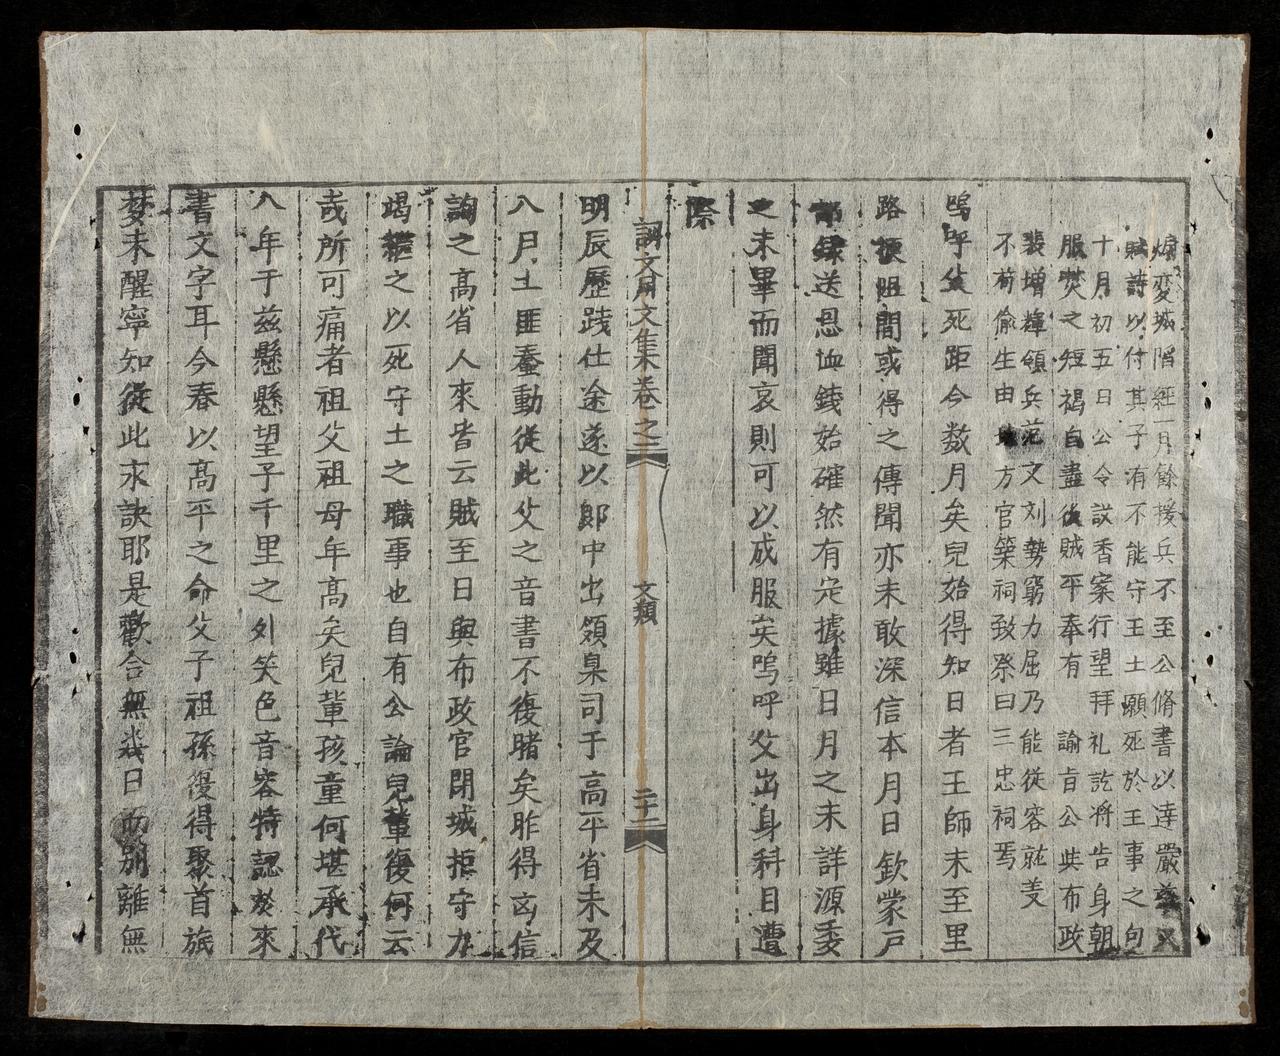 煽變城陷經一月餘援兵不至公脩書以達嚴尊又
賦詩以付其子有不能守王土願死於王事之句
十月初五日公令設香案行望拜礼訖將告身朝
服焚之短褐自盡後賊平奉有 諭旨公典布政
裴增輝領兵范文刘勢窮力屈乃能従容就美
不苟偷生由地方官築祠致祭曰三忠祠焉
嗚呼生死距今数月矣兒始得知日者王師未至里
路梗阻間或得之傳聞亦未敢深信本月日欽蒙戸
部録送恩恤錢始確然有定據雖日月之未詳源委
之未畢而聞哀則可以成服矣嗚呼父出身科目遭
際
訓文用文集卷之三 文類 二十一
明辰歷踐仕途遂以郎中出領臬司于高平省未及
八月土匪蠢動従此父之音書不復睹矣昨得凶信
詢之高省人來者云賊至日與布政官閉城拒守力
竭繼之以死守土之職事也自有公論兒軰復何云
㦲所可痛者祖父祖母年髙矣兒軰孩童何堪承代
八年于兹懸懸望子千里之外笑色音容特認於來
書文字耳今春以髙平之命父子祖孫復得聚首旅
夢未醒寧知従此永訣耶是歡合無㡬日而別離無